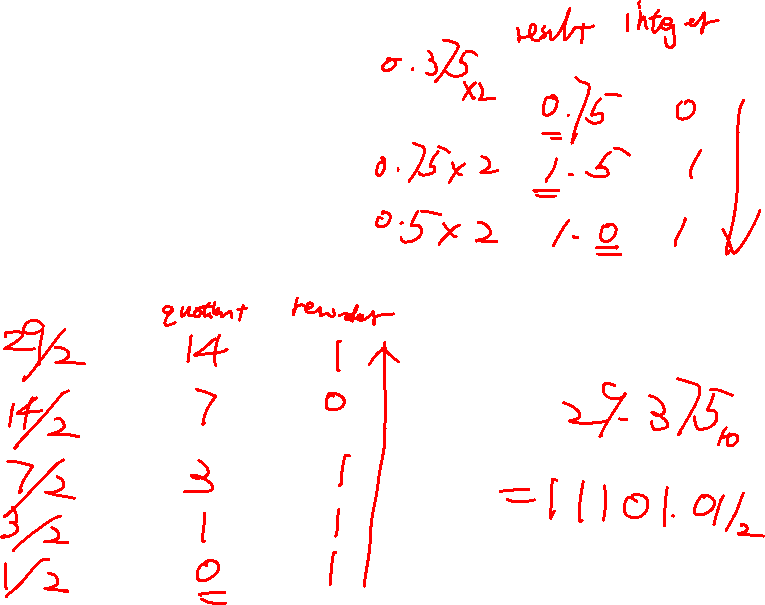 result integer
0.375 ×2 0.75 0
0.75 × 2 1.5 1
0.5 × 2 1.0 1
quotient
29/2 14 1
14/2 7 0
7/2 3 1
3/2 1 1
1/2 0 1
29.375₁₀
= 11101.011₂